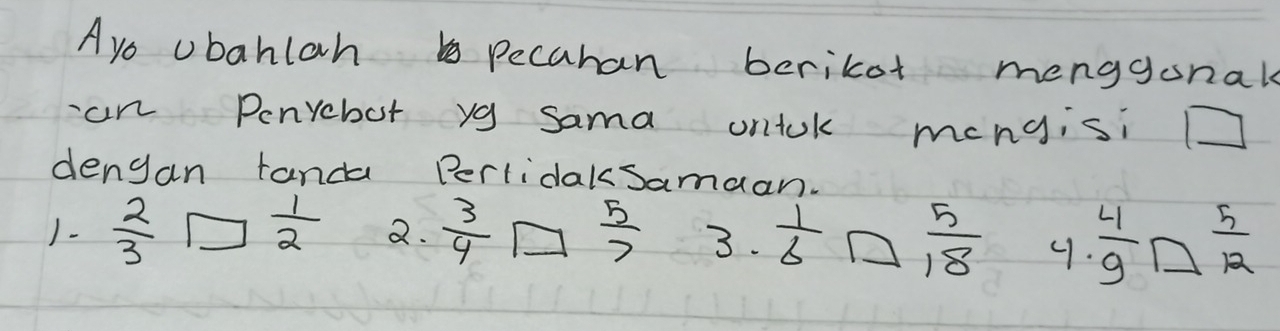 Ayo ubahlah pecahan berikut menggunak
-an Penyebut yg sama untuk mengisi □
dengan tanda Pertidaksamaan.
1. 2/3 □ 1/2 2. 3/4 □ 5/7 3. 1/6 □ 5/18 4. 4/9 □ 5/12